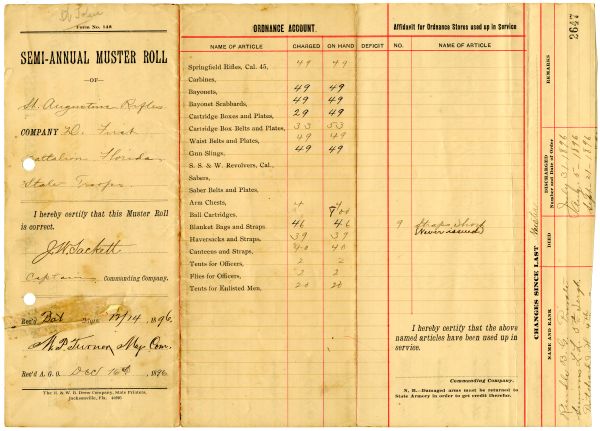 Form No. 148
SEMI-ANNUAL MUSTER ROLL
—OF—
St. Augustine Rifles
COMPANY D. First
Battalion Florida
State Troops
I hereby certify that this Muster Roll
is correct.
J. W. Sackett
Captain Commanding Company.
Rec'd Bat 12/14 1896
M. P. Turner Maj. Com.
Rec'd A. G. O. Dec 16th 1896
The H. & W. B. Drew Company, State Printers,
Jacksonville, Fla.
ORDNANCE ACCOUNT.
NAME OF ARTICLE CHARGED ON HAND DEFICIT
Springfield Rifles, Cal. 45, 49 49
Carbines,
Bayonets, 49 49
Bayonet Scabbards, 49 49
Cartridge Boxes and Plates, 29 49
Cartridge Box Belts and Plates, 53 53
Waist Belts and Plates, 49 49
Gun Slings, 49 49
S. & W. Revolvers, Cal.,
Sabers,
Saber Belts and Plates,
Arm Chests, 4 4
Ball Cartridges, 700
Blanket Bags and Straps 46 46
Haversacks and Straps, 39 39
Canteens and Straps, 40 40
Tents for Officers, 2 2
Flies for Officers, 2 2
Tents for Enlisted Men, 20 20
Affidavit for Ordnance Stores used up in Service
NO. NAME OF ARTICLE
9 Straps Short
(Never issued)
I hereby certify that the above
named articles have been used up in
service.
Commanding Company.
N. B.—Damaged arms must be returned to
State Armory in order to get credit therefor.
CHANGES SINCE LAST
NAME AND RANK
DIED
DISCHARGED
Number and Date of Order
REMARKS
2647
B. G. Private
5th Sergt
July 31, 1896
Aug 5- 1896
Sept 21, 1896